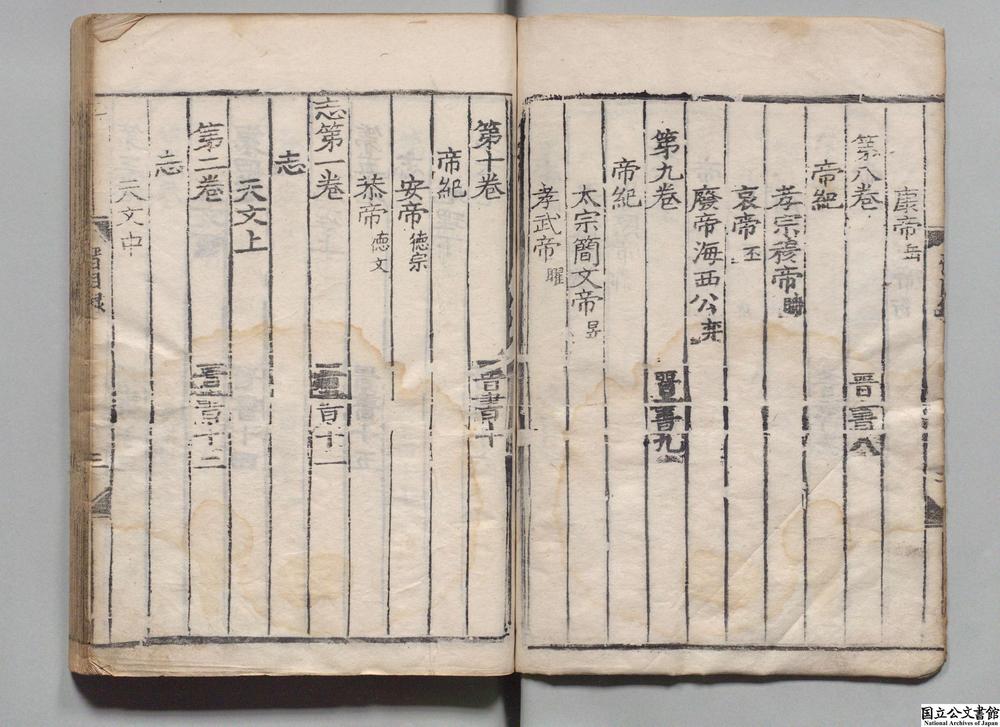 康帝 岳
第八卷 晉書八
帝紀
孝宗穆帝 聃
哀帝 丕
廢帝海西公 奕
第九卷 晉書九
帝紀
太宗簡文帝 昱
孝武帝 曜
第十卷 晉書十
帝紀
安帝 德宗
恭帝 德文
志第一卷 晉書十一
志
天文上
第二卷 晉書十二
志
天文中
晉目録
二
国立公文書館
National Archives of Japan